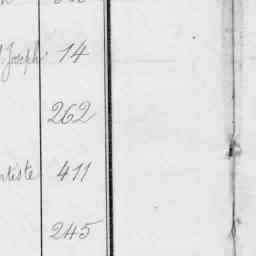 Joseph 14
262
tiste 411
245